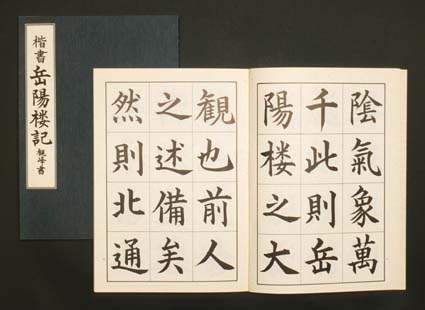 楷書 岳陽楼記 観峰書
陰氣象萬
千此則岳
陽楼之大
観也前人
之述備矣
然則北通